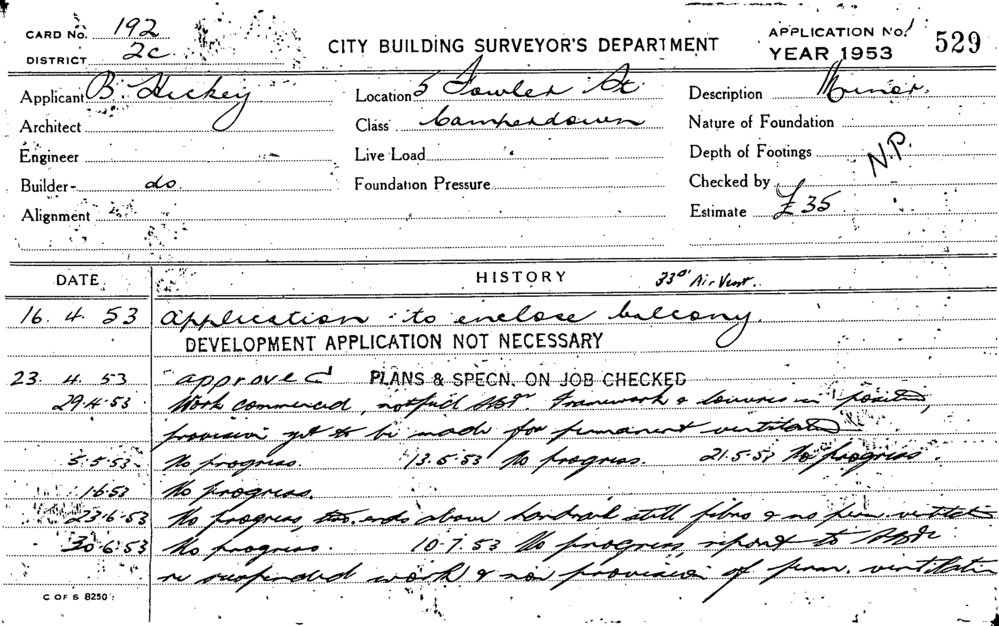 CARD No. 192
DISTRICT 2c
CITY BUILDING SURVEYOR'S DEPARTMENT
APPLICATION No.
YEAR 1953
529
Applicant B. Hickey
Location 5 Fowler St.
Description Minor.
Architect
Class Camperdown
Nature of Foundation
Engineer
Live Load
Depth of Footings
N.P.
Builder- do
Foundation Pressure
Checked by
Alignment
Estimate £35
DATE
HISTORY
33□" Air Vent.
16. 4. 53 application to enclose balcony.
DEVELOPMENT APPLICATION NOT NECESSARY
23. 4. 53 approved PLANS & SPECN. ON JOB CHECKED
29.4.53 Work commenced, notified Framework & louvres in position,
provision yet to be made for permanent ventilation
5.5.53 No progress. 13.5.53 No progress. 21.5.53 No progress.
1.6.53 No progress.
23.6.53 No progress, two ends above handrail still fibro & no perm. ventilation
30.6.53 No progress. 10.7.53 No progress, report to
re suspended work & no provision of perm. ventilation
C OF S 8250